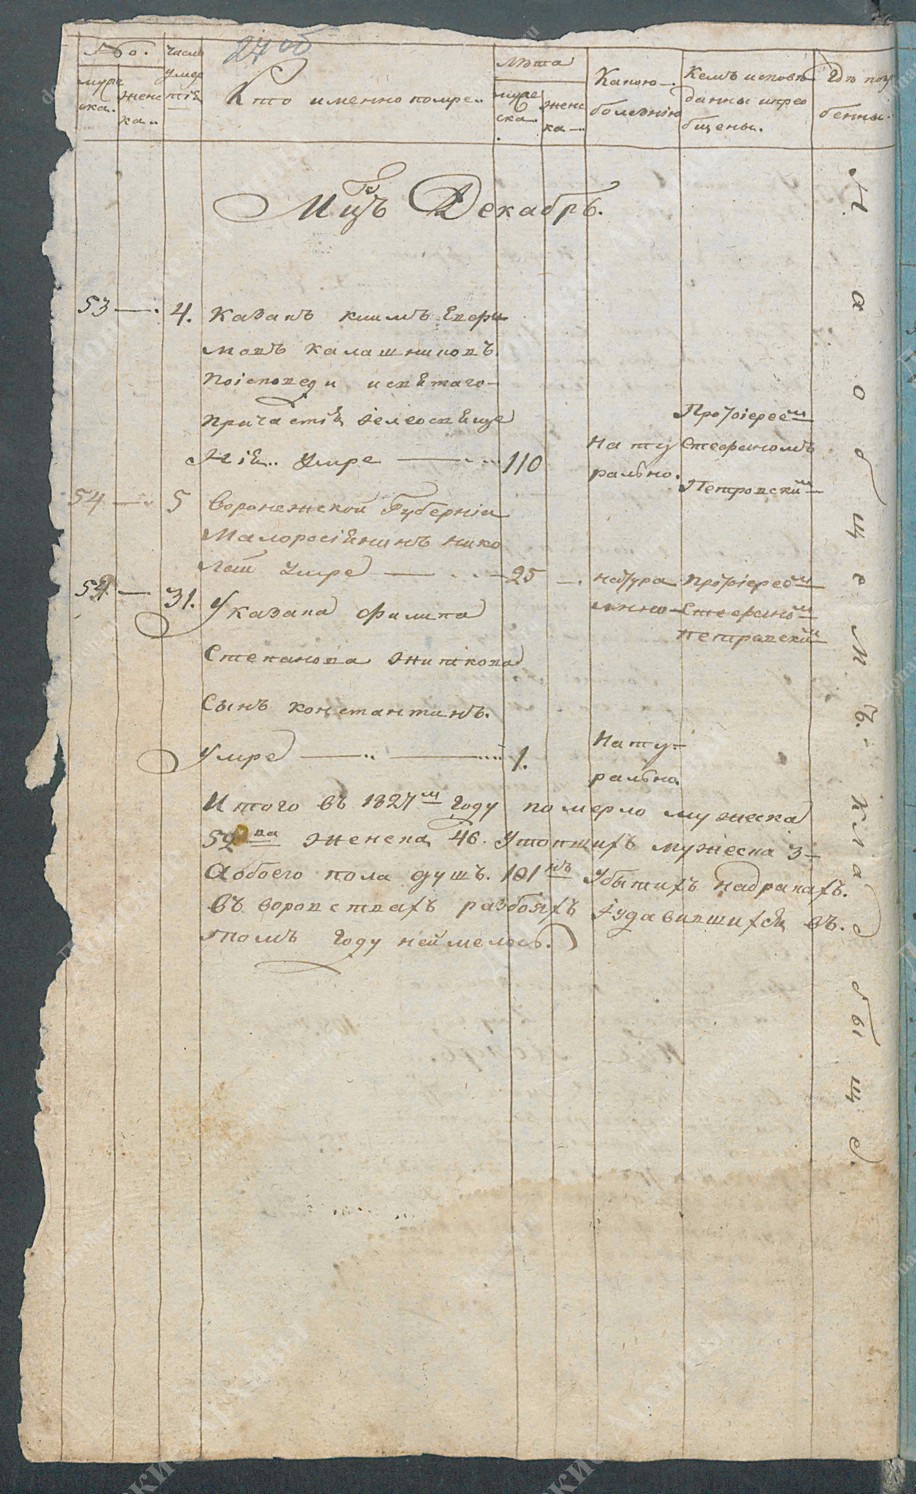 27 об
№о.
Число
Умер
тiя
Лѣта
мужe
ска.
женс
ка..
Кто именно помре..
муже
ска
женс
ка
Какою
болезнiю
Кемъ исповѣ
данны ипрео
бщены.
Гдѣ погр
бенны.
Мцъ Декабрь.
53 — 4. Казакъ климъ Ефри
мовъ калашниковъ.
Поiсповеди исвѣтаго
Причастiя Iелеосвѣще
нiя.. Умре — 110
Нату
рально.
Протоiереемъ
Стефаномъ
Петровскимъ
54 — 5 Воронежской Губернiи
Малоросiянинъ нико
лай Умре — 25 —
натура
льно
Протоiереемъ
Стефаномъ
петравскимъ
31. Указака филипа
Степанова житкова
Сынъ константинъ.
Умре — 1.
Нату-
рально
Итого въ 1827м году померло мужеска
женска 46. Утопшихъ мужеска 3
Аобоего пола душъ. 101нъ Убытихъ надракахъ.
въ воровствахъ разбояхъ Iудавившихся въ.
томъ году неимелось.
на общемъ. кладбыще.